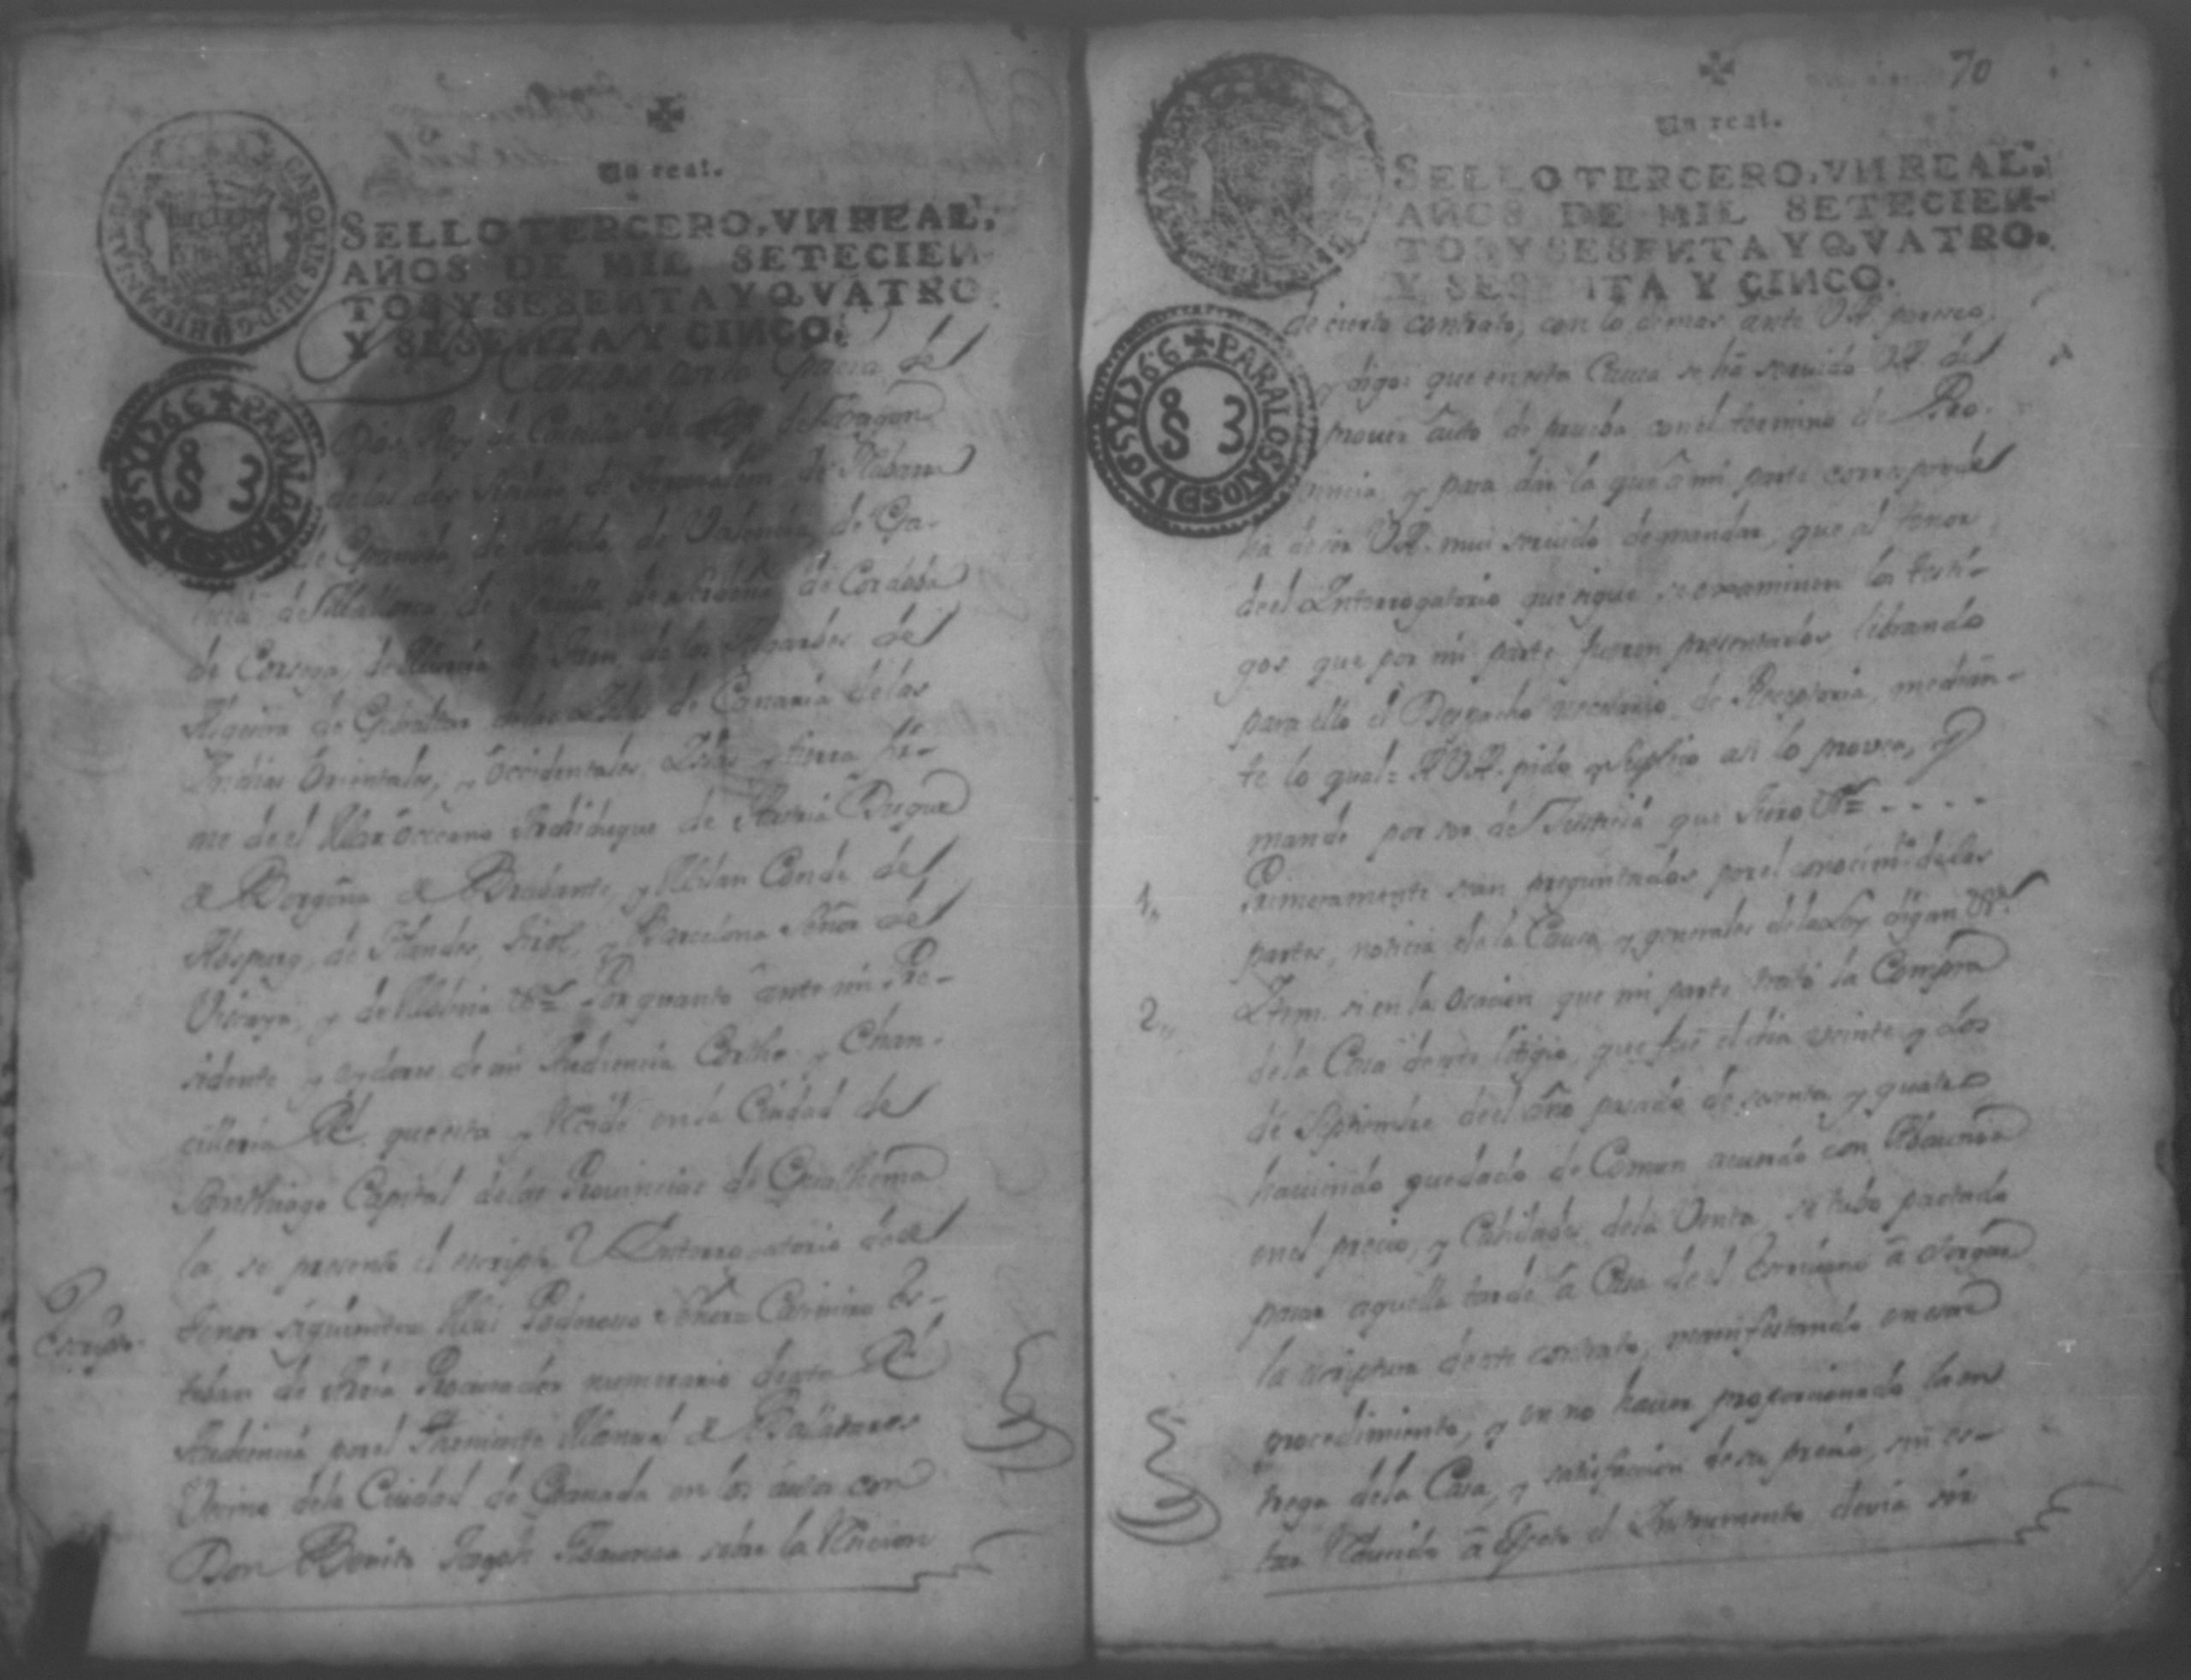 Un real.
SELLO TERCERO, VN REAL,
AÑOS DE MIL SETECIEN-
TOS Y SESENTA Y QVATRO
Y SESENTA Y CINCO.
CAROLUS III D.G. HISPANIAR REX
PARA LOS AÑOS D 1765 Y 1766
§ 3
por la Gracia de
Dios Rey de Castilla de Leon de Aragon
de las dos Sicilias de Jerusalem de Nabarra
de Granada, de Toledo, de Valencia, de Ga-
licia de Mallorca, de Sevilla, de Cerdeña de Cordoba
de Corsega, de Murcia de Jaen, de los Algarbes de
Algecira de Gibraltar de las Islas de Canaria de las
Indias Orientales, y Occidentales, Islas y tierra fir-
me de el Mar Occeano Archiduque de Austria Duque
de Borgoña de Brabante, y Milan Conde de
Abspurg, de Flandes, Tirol, y Barcelona Señor de
Viscaya, y de Molina &a Por quanto ante mi Pre-
sidente y oydores de mi Audiencia Corthe y Chan-
cilleria Rl. que esta y Reside en la Ciudad de
Santhiago Capital de las Provincias de Goathema
la se presentó el escripto Interrogatorio de el
Escripto.
tenor siguiente Mui Poderoso Señor Casimiro Es-
teban de Aria Procurador numerario de esta Rl
Audiencia por el Theniente Manuel de Balladares
Vecino de la Ciudad de Granada en los autos con
Don Benito Abaunza sobre la
70
Un real.
SELLO TERCERO, VN REAL,
AÑOS DE MIL SETECIEN-
TOS Y SESENTA Y QVATRO
Y SESENTA Y CINCO.
PARA LOS AÑOS D 1765 Y 1766
§ 3
de cierto contrato, con lo demas ante VA. paresco,
y digo: que en esta Causa se ha servido VA. de
proveer auto de prueba con el termino de Pro-
vincia, y para dar la que à mi parte corresponde
ha de ser VA. mui servido de mandar, que al tenor
de el Interrogatorio que sigue se examinen los testi-
gos que por mi parte fueren presentados librando
para ello el Despacho necesario de Receptoria, median-
te lo qual= A VA. pido y suplico asi lo provea, y
mande por ser de Justicia que Juro &a - - - -
1,, Primeramente sean preguntados por el conocimto de las
partes, noticia de la Causa y generales de la Ley digan &a
2,, Itten. si en la ocacion que mi parte trató la Compra
de la Casa de este litigio, que fue el dia veinte y dos
de Septiembre de el año pasado de sesenta y quatro
haviendo quedado de Comun acuerdo con Abaunza
en el precio, y Calidades de la Venta se hubo pactado
pasar aquella tarde à Casa de el Escrivano à otorgar
la escriptura de este contrato, manifestando en este
procedimiento, y en no haver proporcionado la en
trega de la Casa, y satisfaccion de su precio, sin es-
tar Reducido à efecto el Instrumento devia ser